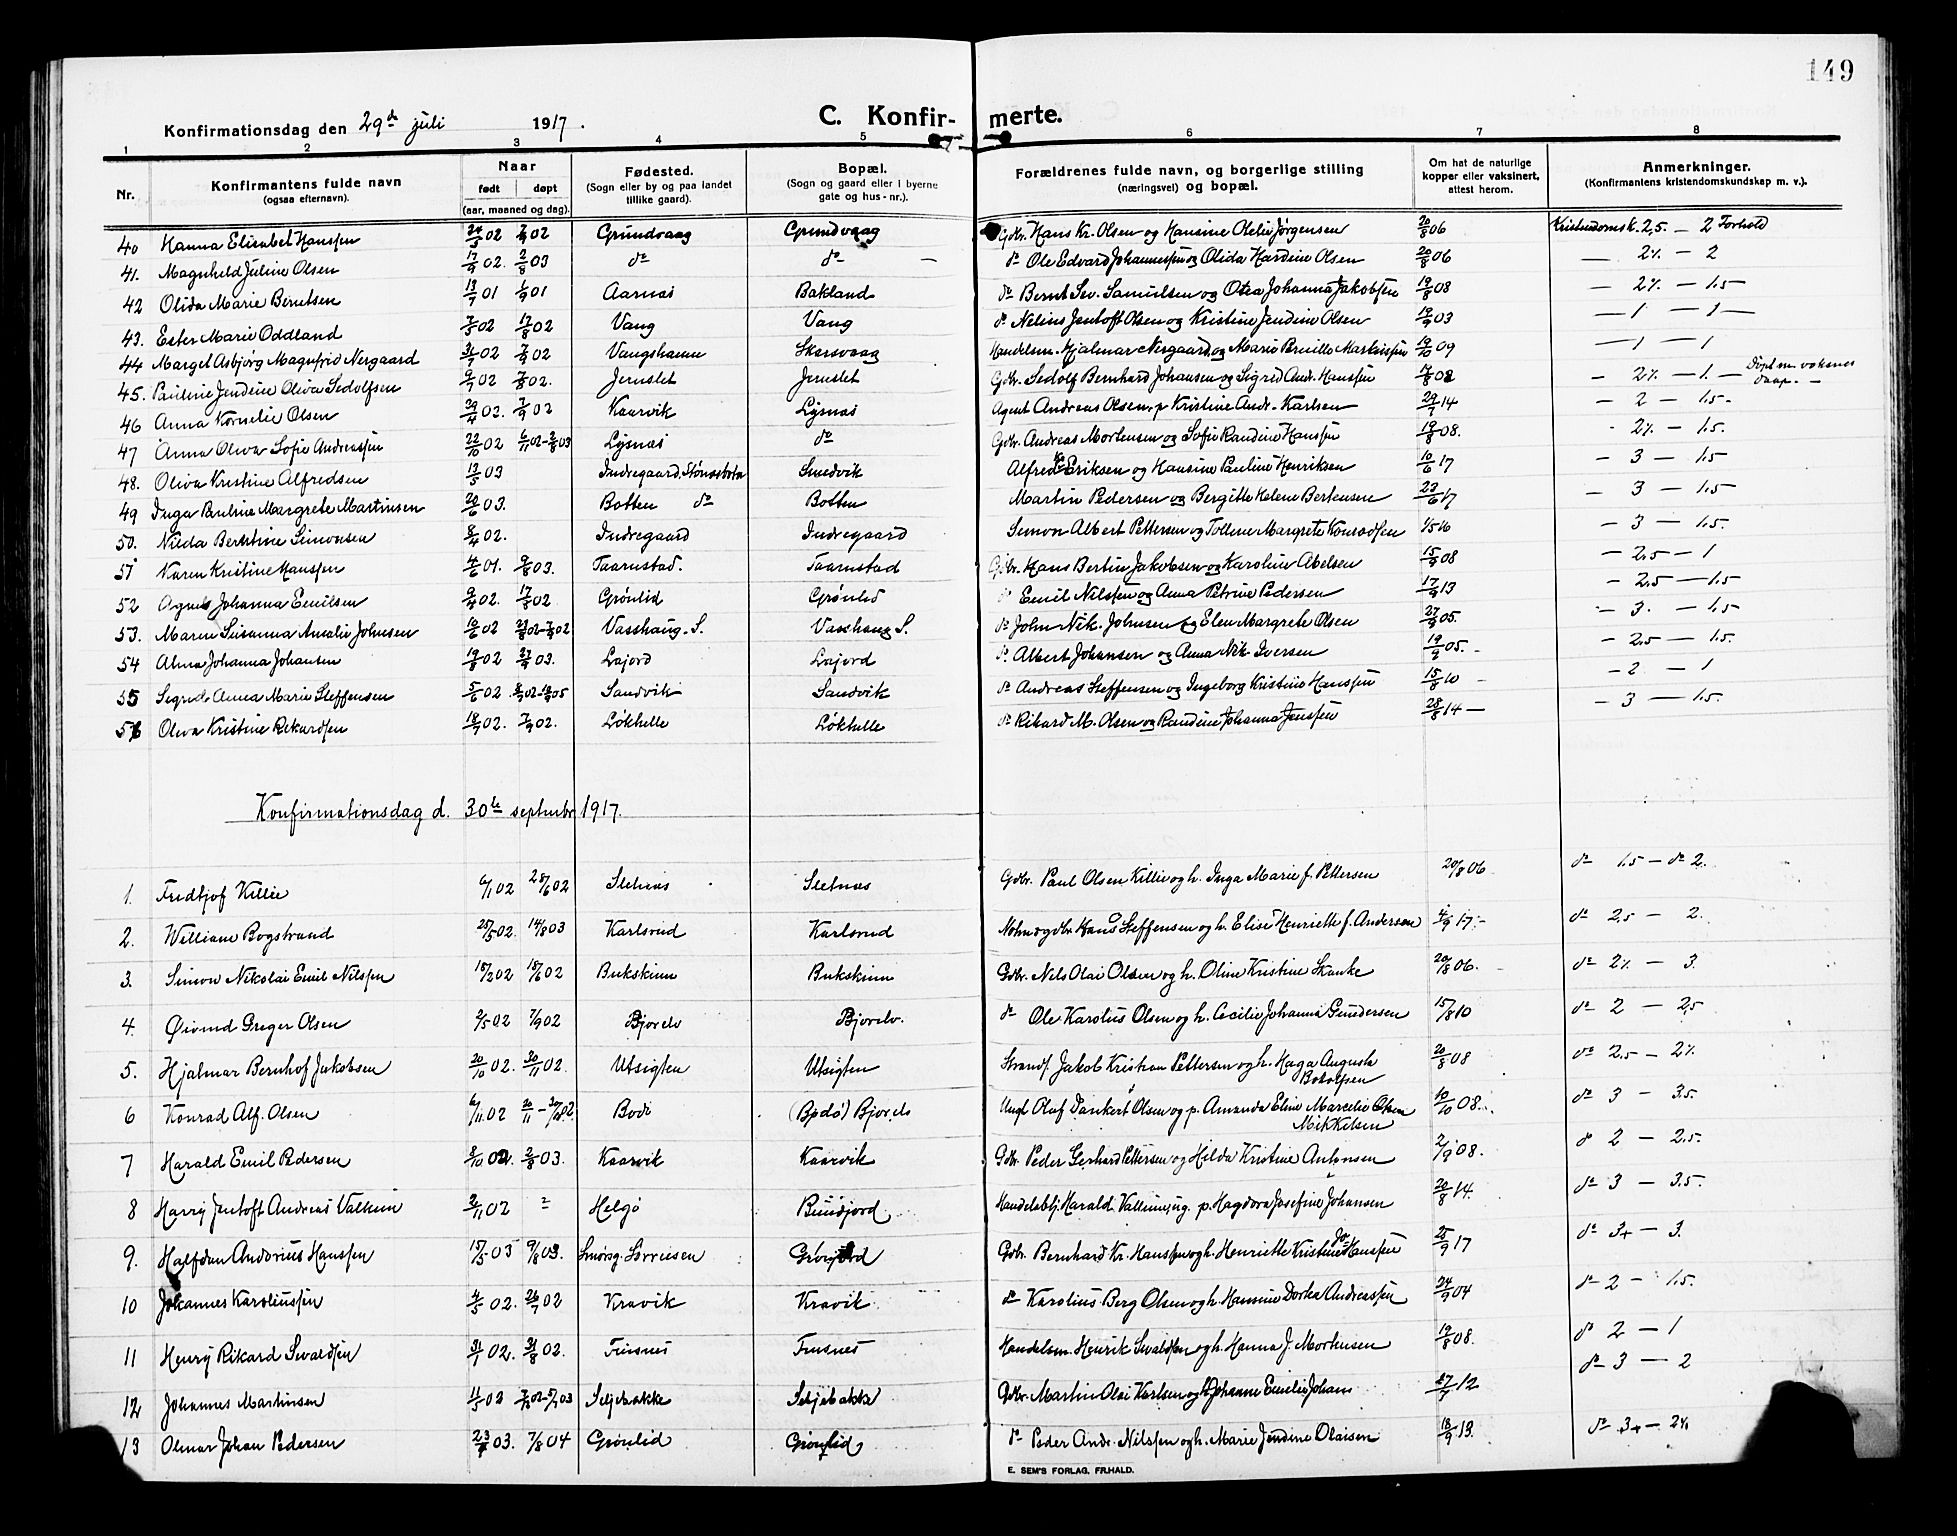 149
Konfirmationsdag den 29de juli 1917.
C. Konfir- merte.
1 2 3 4 5 6 7 8
Nr. Konfirmantens fulde navn (ogsaa efternavn). Naar født døpt (aar, maaned og dag). Fødested. (Sogn eller by og paa landet tillike gaard). Bopæl. (Sogn og gaard eller i byerne gate og hus-nr.). Forældrenes fulde navn, og borgerlige stilling (næringsvei) og bopæl. Om hat de naturlige kopper eller vaksinert, attest herom. Anmerkninger. (Konfirmantens kristendomskundskap m. v.).
40 Hanna Elisabet Hanssen 24/5 02 7/9 02 Grundvaag Grundvaag Gdbr. Hans Kr. Olsen og Hansine Oleliv Jørgensen 20/8 06 Kristendomsk. 2,5 – 2 Forhold
41. Magnheld Juline Olsen 17/9 02. 2/8 03 do do – do Ole Edvard Johannessen og Olida Hardine Olsen 20/8 06 — 2% – 2
42 Olida Marie Berntsen 13/7 01 1/9 01 Aarnes Bakland do Bernt Sev. Samuelsen og Otea Johanna Jakobsen 19/8 08 – 2% – 1.5
43. Ester Marie Oddland 7/5 02 17/8 02 Vang Vang do Nelius Jentoft Olsen og Kristine Jendine Olsen 19/9 03 – 1 – 1 –
44 Marget Asbjørg Magnfrid Nergaard 31/7 02 7/9 02 Vangshamn Skarsvaag Handelsm. Hjalmar Nergaard og Marie Pernille Martinsen 19/10 09 – 1 – 1
45. Pauline Jendine Oliva Sedolfsen 9/7 02 7/8 02. Jernslet Jernslet Gdbr. Sedolf Bernhard Johansen og Sigred And. Hanssen 17/8 08 – 2% – 1. – Døpt m. voksnes daap. –
46 Anna Kornelie Olsen 29/4 02. 7/9 02 Kaarvik Lysnes Agent Andreas Olsen, p Kristine Andr. Karlsen 29/7 14 – 2 – 1.5 –
47 Anna Oliva Sofie Andreassen 22/10 02 6/11 02 – 2/8 03 Lysnes do Gdbr. Andreas Mortensen og Sofie Randine Hanssen 19/8 08. - 2% – 1.5.
48. Oliva Kristine Alfredsen 13/5 03 Indregaard, Stønesbotn Smedvik Alfred Eriksen og Hansine Pauline Henriksen 10/6 17 – 3 – 1.5
49 Inga Pauline Margrete Martinsen 20/6 03. Botten do Botten Martin Pedersen og Bergitte Helene Bertensen 23/6 17 – 3 – 1.5
50. Nilda Berntine Simonsen 8/4 02. Indregaard Indregaard Simon Albert Pettersen og Tolline Margrete Konradsen 1/5 16 – 3 – 1.5.
51 Karen Kristine Hanssen 4/6 01. 9/8 03. Taarnstad. Taarnstad Gdbr. Hans Bertin Jakobsen og Karoline Abelsen 15/9 08 – 2.5 – 1
52 Agnes Johanna Emilsen 9/4 02. 17/8 02. Grønlid Grønlid do Emil Nilssen og Anna Petrine Pedersen 17/9 13 – 2.5 – 1.5
53. Maren Susanna Amalie Johnsen 10/6 02 Vasshaug. S. Vasshaug S. do John Nik. Johnsen og Elen Margrete Olsen 27/9 05. – 3. – 1.5
54 Alma Johanna Johansen 19/8 02 27/9 03. Lajord Lajord do Albert Johansen og Anna Nik. Iversen 19/9 05. – – 2.5 – 1.5.
55 Segred Anna Marie Steffensen 5/6 02 Sandvik Sandvik do Andreas Steffensen og Ingeborg Kristine Hanssen 15/8 10 – – 2 – 1
56 Oliva Kristine Rikardsen 18/7 02. 7/9 02. Løkhelle Løkhelle do Rikard M. Olsen og Randine Johanna Jenssen 28/8 14 – – 3 – 1.5.
Konfirmationsdag d. 30te septembr 1917.
1. Fridtjof Killie 6/1 02 28/6 02 Sletnes Sletnes Gdbr. Paul Olsen Killie og h. Inga Marie f. Pettersen 20/8 06 do 1.5 – do 2.
2. William Bogstrand 25/5 02. 14/8 03 Karlsrud Karlsrud Hans Steffensen og h. Elise Henriette f. Andersen 4/9 17. – do 2.5 – 2.
3. Simon Nikolai Emil Nilssen 18/2 02 15/6 02 Bukskinn Bukskinn Gdbr. Nels Olai Olsen og h. Oline Kristine Skanke 20/8 06. – do 2% – 3.
4. Øivind Greger Olsen 2/5 02 7/9 02 Bjorelv Bjorelv. do Ole Karolius Olsen og h. Cecilie Johanna Gundersen 15/8 10 do 2 – 2,5
5. Hjalmar Bernhof Jakobsen 20/10 02. 30/11 02. Utsigten Utsigten Strands. Jakob Kristian Pettersen og h. Haga Augusta Botolfsen 20/8 08 do 2.5 – 2%
6 Konrad Alf. Olsen 6/11 02 Bodø (Bodø) Bjorelv Ungk Oluf Dankert Olsen og p. Amanda Eline Marcelie Olsen Mikkelsen 10/10 08.. do 3 – 3.5.
7 Harald Emil Pedersen 8/10 02. 2/8 03. Kaarvik Kaarvik Gdbr. Peder Gerhard Pettersen og Hilda Kristine Antonsen 2/9 08. do 2 – 2.5.
8 Harry Jentoft Andreas Valkum 2/11 02 Helgø Rundfjord Handelsbtj. Harald Vallum, ug. p. Hagdora Josefine Johansen 20/8 14. do 3 – 3.5.
9. Halfdan Andorius Hanssen 15/5 03 9/8 03. Smørsg. Sørreisen Grønlid Gdbr. Bernhard Kr. Hanssen og h. Henriette Kristine Hanssen 25/9 17 do 3+ – 3.
10 Johannes Karoliussen 4/5 02. 26/7 02 Kravik Kravik do Karolius Berg Olsen og h. Hansine Dorthea Andreassen 24/9 04 do 2 – 1.5.
11 Henry Rikard Sivaldsen 31/1 02. 31/8 02. Finsnes Finsnes Handelsm. Henrik Sivaldsen og h. Hanna J. Mortensen 19/8 08. do 2 – 1
12 Johannes Martinsen 11/5 02 Seljebakke Seljebakke Gdbr. Martin Olai Karlsen og h. Johanne Emilie Johans 27/7 12 do 3 – 2
13 Olmar Johan Pedersen 23/7 03. 7/8 04 Grønlid Grønlid do Peder Andr. Nilssen og h. Marie Jendine Olaisen 18/9 13. do 3+ – 2%
E. SEM'S FORLAG, FR.HALD.